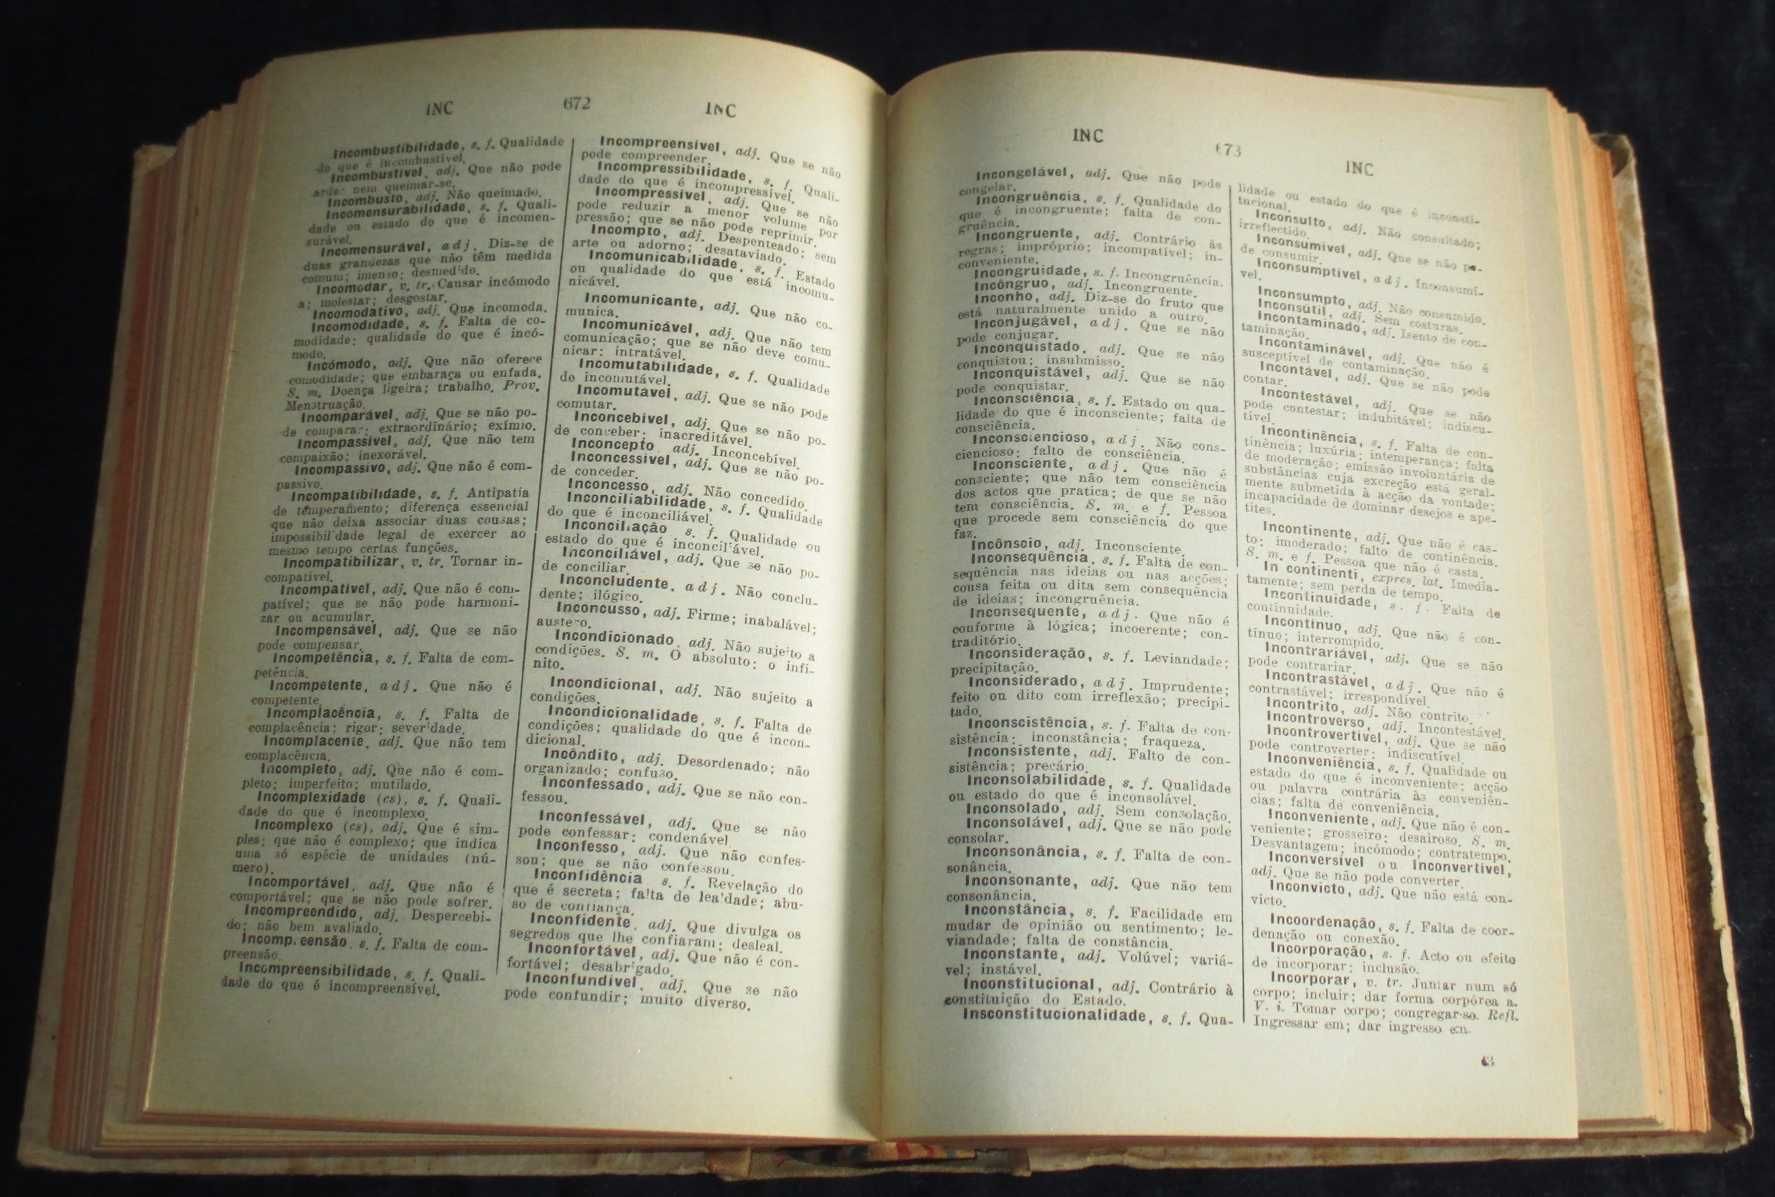 INC 672 INC
Incombustibilidade, s. f. Qualidade
do que é incombustível.
Incombustível, adj. Que não pode
arder nem queimar-se.
Incombusto, adj. Não queimado.
Incomensurabilidade, s. f. Quali-
dade ou estado do que é incomen-
surável.
Incomensurável, adj. Diz-se de
duas grandezas que não têm medida
comum; imenso; desmedido.
Incomodar, v. tr. Causar incómodo
a; molestar; desgostar.
Incomodativo, adj. Que incomoda.
Incomodidade, s. f. Falta de co-
modidade; qualidade do que é incó-
modo.
Incómodo, adj. Que não oferece
comodidade; que embaraça ou enfada.
S. m. Doença ligeira; trabalho. Prov.
Menstruação.
Incomparável, adj. Que se não po-
de comparar; extraordinário; exímio.
Incompassível, adj. Que não tem
compaixão; inexorável.
Incompassivo, adj. Que não é com-
passivo.
Incompatibilidade, s. f. Antipatia
de temperamento; diferença essencial
que não deixa associar duas cousas;
impossibilidade legal de exercer ao
mesmo tempo certas funções.
Incompatibilizar, v. tr. Tornar in-
compatível.
Incompatível, adj. Que não é com-
patível; que se não pode harmoni-
zar ou acumular.
Incompensável, adj. Que se não
pode compensar.
Incompetência, s. f. Falta de com-
petência.
Incompetente, adj. Que não é
competente.
Incomplacência, s. f. Falta de
complacência; rigor; severidade.
Incomplacente, adj. Que não tem
complacência.
Incompleto, adj. Que não é com-
pleto; imperfeito; mutilado.
Incomplexidade (cs), s. f. Quali-
dade do que é incomplexo.
Incomplexo (cs), adj. Que é sim-
ples; que não é complexo; que indica
uma só espécie de unidades (nú-
mero).
Incomportável, adj. Que não é
comportável; que se não pode sofrer.
Incompreendido, adj. Despercebi-
do; não bem avaliado.
Incompreensão, s. f. Falta de com-
preensão.
Incompreensibilidade, s. f. Quali-
dade do que é incompreensível.
Incompreensível, adj. Que se não
pode compreender.
Incompressibilidade, s. f. Quali-
dade do que é incompressível.
Incompressível, adj. Que se não
pode reduzir a menor volume por
pressão; que se não pode reprimir.
Incompto, adj. Despenteado; sem
arte ou adorno; desataviado.
Incomunicabilidade, s. f. Estado
ou qualidade do que está incomu-
nicável.
Incomunicante, adj. Que não co-
munica.
Incomunicável, adj. Que não tem
comunicação; que se não deve comu-
nicar; intratável.
Incomutabilidade, s. f. Qualidade
do incomutável.
Incomutável, adj. Que se não pode
comutar.
Inconcebível, adj. Que se não po-
de conceber; inacreditável.
Inconcepto, adj. Inconcebível.
Inconcessível, adj. Que se não po-
de conceder.
Inconcesso, adj. Não concedido.
Inconciliabilidade, s. f. Qualidade
do que é inconciliável.
Inconciliação, s. f. Qualidade ou
estado do que é inconciliável.
Inconciliável, adj. Que se não po-
de conciliar.
Inconcludente, adj. Não conclu-
dente; ilógico.
Inconcusso, adj. Firme; inabalável;
austero.
Incondicionado, adj. Não sujeito a
condições. S. m. O absoluto; o infi-
nito.
Incondicional, adj. Não sujeito a
condições.
Incondicionalidade, s. f. Falta de
condições; qualidade do que é incon-
dicional.
Incôndito, adj. Desordenado; não
organizado; confuso.
Inconfessado, adj. Que se não con-
fessou.
Inconfessável, adj. Que se não
pode confessar; condenável.
Inconfesso, adj. Que não confes-
sou; que se não confessou.
Inconfidência, s. f. Revelação do
que é secreta; falta de lealdade; abu-
so de confiança.
Inconfidente, adj. Que divulga os
segredos que lhe confiaram; desleal.
Inconfortável, adj. Que não é con-
fortável; desabrigado.
Inconfundível, adj. Que se não
pode confundir; muito diverso.
INC 673 INC
Incongelável, adj. Que não pode
congelar.
Incongruência, s. f. Qualidade do
que é incongruente; falta de con-
gruência.
Incongruente, adj. Contrário às
regras; impróprio; incompatível; in-
conveniente.
Incongruidade, s. f. Incongruência.
Incôngruo, adj. Incongruente.
Inconho, adj. Diz-se do fruto que
está naturalmente unido a outro.
Inconjugável, adj. Que se não
pode conjugar.
Inconquistado, adj. Que se não
conquistou; insubmisso.
Inconquistável, adj. Que se não
pode conquistar.
Inconsciência, s. f. Estado ou qua-
lidade do que é inconsciente; falta de
consciência.
Inconsciencioso, adj. Não cons-
ciencioso; falto de consciência.
Inconsciente, adj. Que não é
consciente; que não tem consciência
dos actos que pratica; de que se não
tem consciência. S. m. e f. Pessoa
que procede sem consciência do que
faz.
Incônscio, adj. Inconsciente.
Inconsequência, s. f. Falta de con-
sequência nas ideias ou nas acções;
cousa feita ou dita sem consequência
de ideias; incongruência.
Inconsequente, adj. Que não é
conforme à lógica; incoerente; con-
traditório.
Inconsideração, s. f. Leviandade;
precipitação.
Inconsiderado, adj. Imprudente;
feito ou dito com irreflexão; precipi-
tado.
Inconscistência, s. f. Falta de con-
sistência; inconstância; fraqueza.
Inconsistente, adj. Falto de con-
sistência; precário.
Inconsolabilidade, s. f. Qualidade
ou estado do que é inconsolável.
Inconsolado, adj. Sem consolação.
Inconsolável, adj. Que se não pode
consolar.
Inconsonância, s. f. Falta de con-
sonância.
Inconsonante, adj. Que não tem
consonância.
Inconstância, s. f. Facilidade em
mudar de opinião ou sentimento; le-
viandade; falta de constância.
Inconstante, adj. Volúvel; variá-
vel; instável.
Inconstitucional, adj. Contrário à
constituição do Estado.
Insconstitucionalidade, s. f. Qua-
lidade ou estado do que é inconsti-
tucional.
Inconsulto, adj. Não consultado;
irreflectido.
Inconsumível, adj. Que se não po-
de consumir.
Inconsumptível, adj. Inconsumí-
vel.
Inconsumpto, adj. Não consumido.
Inconsútil, adj. Sem costuras.
Incontaminado, adj. Isento de con-
taminação.
Incontaminável, adj. Que não é
susceptível de contaminação.
Incontável, adj. Que se não pode
contar.
Incontestável, adj. Que se não
pode contestar; indubitável; indiscu-
tível.
Incontinência, s. f. Falta de con-
tinência; luxúria; intemperança; falta
de moderação; emissão involuntária de
substâncias cuja excreção está geral-
mente submetida à acção da vontade;
incapacidade de dominar desejos e ape-
tites.
Incontinente, adj. Que não é cas-
to; imoderado; falto de continência.
S. m. e f. Pessoa que não é casta.
In continenti, expres. lat. Imedia-
tamente; sem perda de tempo.
Incontinuidade, s. f. Falta de
continuidade.
Incontínuo, adj. Que não é con-
tínuo; interrompido.
Incontrariável, adj. Que se não
pode contrariar.
Incontrastável, adj. Que não é
contrastável; irrespondível.
Incontrito, adj. Não contrito.
Incontroverso, adj. Incontestável.
Incontrovertível, adj. Que se não
pode controverter; indiscutível.
Inconveniência, s. f. Qualidade ou
estado do que é inconveniente; acção
ou palavra contrária às conveniên-
cias; falta de conveniência.
Inconveniente, adj. Que não é con-
veniente; grosseiro; desairoso. S. m.
Desvantagem; incómodo; contratempo.
Inconversível ou Inconvertível,
adj. Que se não pode converter.
Inconvicto, adj. Que não está con-
victo.
Incoordenação, s. f. Falta de coor-
denação ou conexão.
Incorporação, s. f. Acto ou efeito
de incorporar; inclusão.
Incorporar, v. tr. Juntar num só
corpo; incluir; dar forma corpórea a.
V. i. Tomar corpo; congregar-se. Refl.
Ingressar em; dar ingresso em.